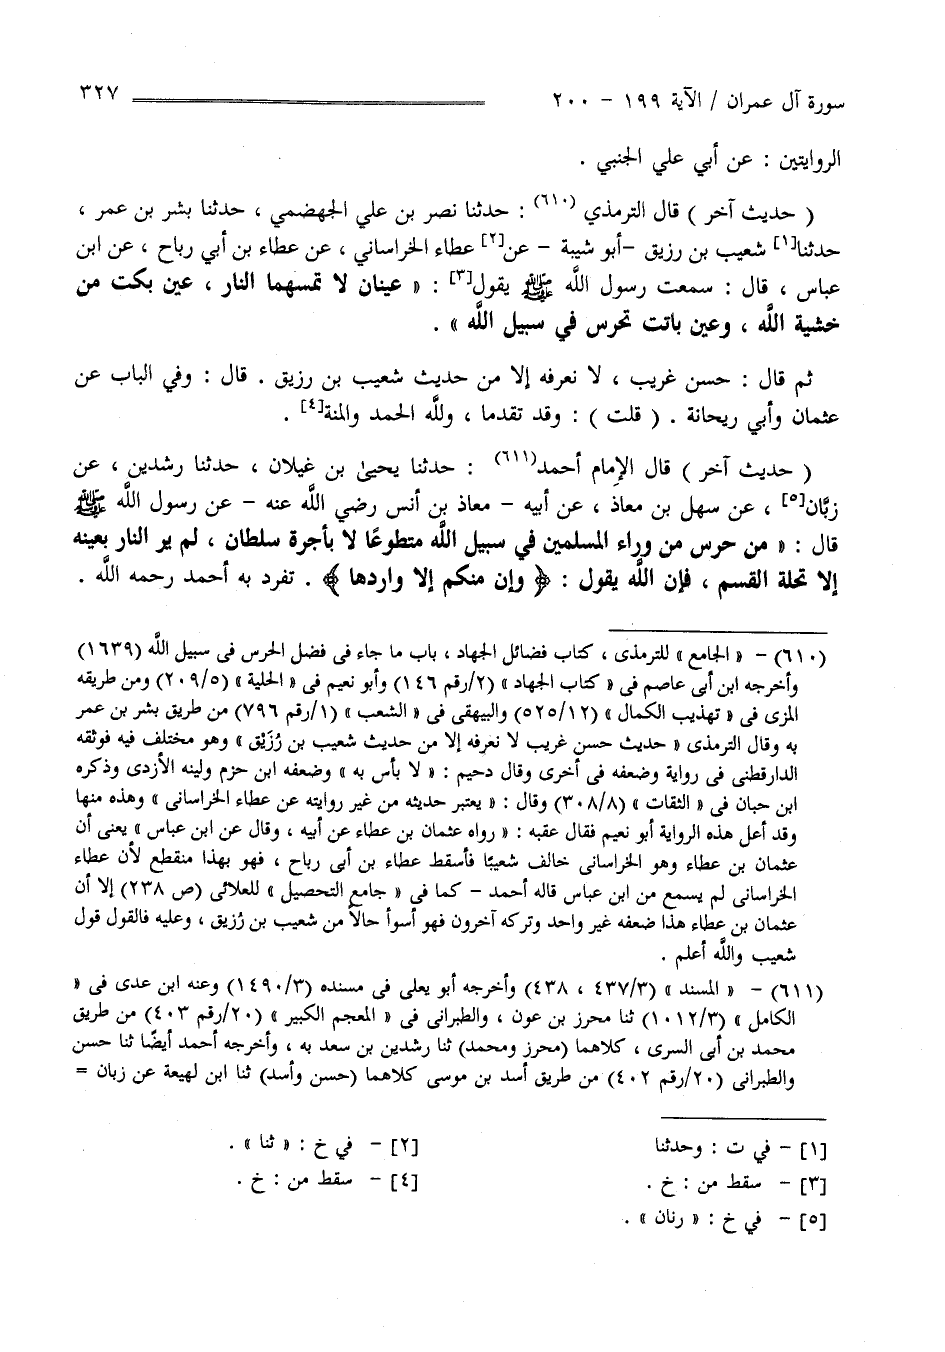 سورة آل عمران / الآية ١٩٩ - ٢٠٠ ٣٢٧
الروايتين : عن أبي علي الجنبي .
( حديث آخر ) قال الترمذي (٦١٠) : حدثنا نصر بن علي الجهضمي ، حدثنا بشر بن عمر ،
حدثنا[١] شعيب بن رزيق -أبو شيبة - عن[٢] عطاء الخراساني ، عن عطاء بن أبي رباح ، عن ابن
عباس ، قال : سمعت رسول اللَّه ﷺ يقول[٣] : « عينان لا تمسهما النار ، عين بكت من
خشية اللَّه ، وعين باتت تحرس في سبيل اللَّه » .
ثم قال : حسن غريب ، لا نعرفه إلا من حديث شعيب بن رزيق . قال : وفي الباب عن
عثمان وأبي ريحانة . ( قلت ) : وقد تقدما ، وللَّه الحمد والمنة[٤] .
( حديث آخر ) قال الإمام أحمد(٦١١) : حدثنا يحيىٰ بن غيلان ، حدثنا رشدين ، عن
زبَّان[٥] ، عن سهل بن معاذ ، عن أبيه - معاذ بن أنس رضي اللَّه عنه - عن رسول اللَّه ﷺ
قال : « من حرس من وراء المسلمين في سبيل اللَّه متطوعًا لا بأجرة سلطان ، لم ير النار بعينه
إلا تحلة القسم ، فإن اللَّه يقول : ﴿ وإن منكم إلا واردها ﴾ . تفرد به أحمد رحمه اللَّه .
(٦١٠) - « الجامع » للترمذى ، كتاب فضائل الجهاد ، باب ما جاء فى فضل الحرس فى سبيل اللَّه (١٦٣٩)
وأخرجه ابن أبى عاصم فى « كتاب الجهاد » (٢/رقم ١٤٦) وأبو نعيم فى « الحلية » (٢٠٩/٥) ومن طريقه
المزى فى « تهذيب الكمال » (٥٢٥/١٢) والبيهقى فى « الشعب » (١/رقم ٧٩٦) من طريق بشر بن عمر
به وقال الترمذى « حديث حسن غريب لا نعرفه إلا من حديث شعيب بن رُزَيْق » وهو مختلف فيه فوثقه
الدارقطنى فى رواية وضعفه فى أخرى وقال دحيم : « لا بأس به » وضعفه ابن حزم ولينه الأزدى وذكره
ابن حبان فى « الثقات » (٣٠٨/٨) وقال : « يعتبر حديثه من غير روايته عن عطاء الخراسانى » وهذه منها
وقد أعل هذه الرواية أبو نعيم فقال عقبه : « رواه عثمان بن عطاء عن أبيه ، وقال عن ابن عباس » يعنى أن
عثمان بن عطاء وهو الخراسانى خالف شعيبًا فأسقط عطاء بن أبى رباح ، فهو بهذا منقطع لأن عطاء
الخراسانى لم يسمع من ابن عباس قاله أحمد - كما فى « جامع التحصيل » للعلائى (ص ٢٣٨) إلا أن
عثمان بن عطاء هذا ضعفه غير واحد وتركه آخرون فهو أسوأ حالاً من شعيب بن رُزيق ، وعليه فالقول قول
شعيب واللَّه أعلم .
(٦١١) - « المسند » (٤٣٧/٣ ، ٤٣٨) وأخرجه أبو يعلى فى مسنده (١٤٩٠/٣) وعنه ابن عدى فى «
الكامل » (١٠١٢/٣) ثنا محرز بن عون ، والطبرانى فى « المعجم الكبير » (٢٠/رقم ٤٠٣) من طريق
محمد بن أبى السرى ، كلاهما (محرز ومحمد) ثنا رشدين بن سعد به ، وأخرجه أحمد أيضًا ثنا حسن
والطبرانى (٢٠/رقم ٤٠٢) من طريق أسد بن موسى كلاهما (حسن وأسد) ثنا ابن لهيعة عن زبان =
[١] - في ت : وحدثنا [٢] - في خ : « ثنا » .
[٣] - سقط من : خ . [٤] - سقط من : خ .
[٥] - في خ : « رنان » .